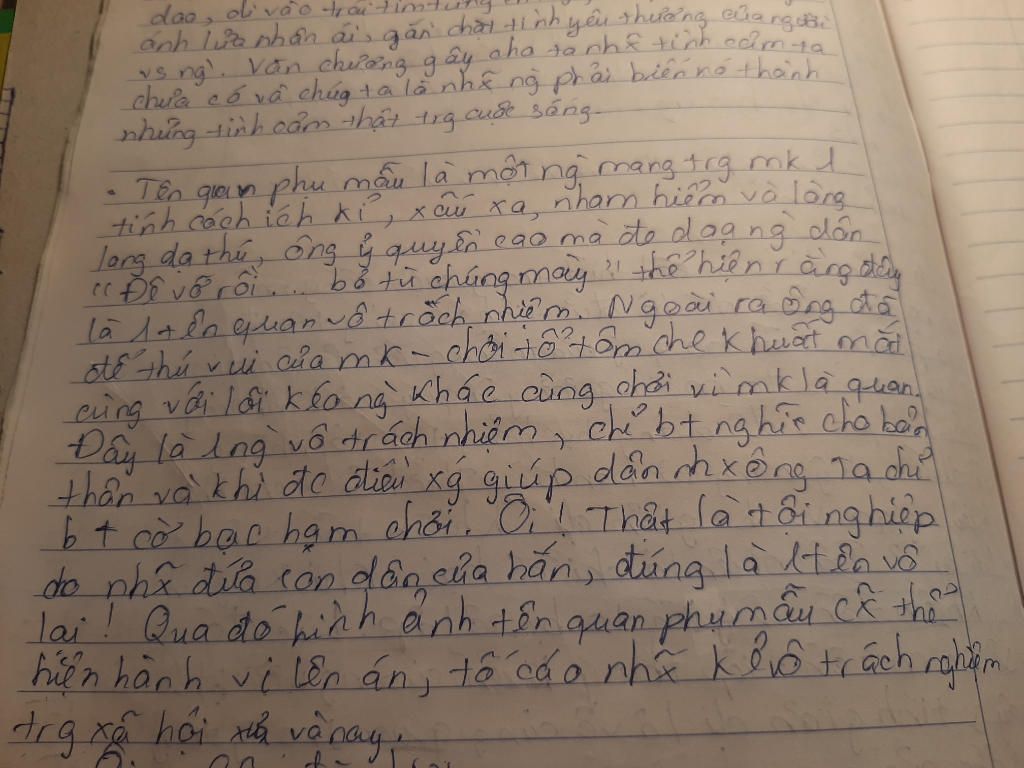 dao, đi vào trái tim từng
ánh lửa nhân ái, gắn chặt tình yêu thương của người
vs ng`. Văn chương gây cho ta nh~ tình cảm ta
chưa có và chúng ta là nh~ ng` phải biến nó thành
những tình cảm thật trg cuộc sống.
• Tên quan phụ mẫu là một ng` mang trg mk 1
tính cách ích kỉ, xấu xa, nham hiểm và lòng
lang dạ thú, ông ỷ quyền cao mà đe doạ ng` dân
"Đê vỡ rồi ... bỏ tù chúng mày" thể hiện rằng đây
là 1 tên quan vô trách nhiệm. Ngoài ra ông đã
để thú vui của mk - chơi tổ tôm che khuất mắt
cùng với lôi kéo ng` khác cùng chơi vì mk là quan.
Đây là 1 ng` vô trách nhiệm, chỉ bt nghĩ cho bản
thân và khi đc điều xg giúp dân nh ông ta chỉ
bt cờ bạc ham chơi. Ôi! Thật là tội nghiệp
do nh~ đứa con dân của hắn, đúng là 1 tên vô
lại! Qua đó hình ảnh tên quan phụ mẫu cx thể
hiện hành vi lên án, tố cáo nh~ kẻ vô trách nghiệm
trg xã hội xưa và nay.